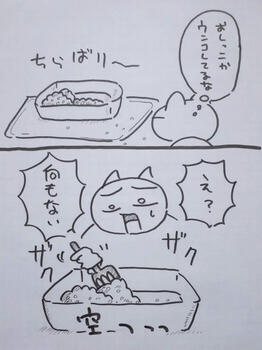 おしっこか
ウンコしてるな
ちらばり〜
え?
何もない
ザク
ザク
空っっっ